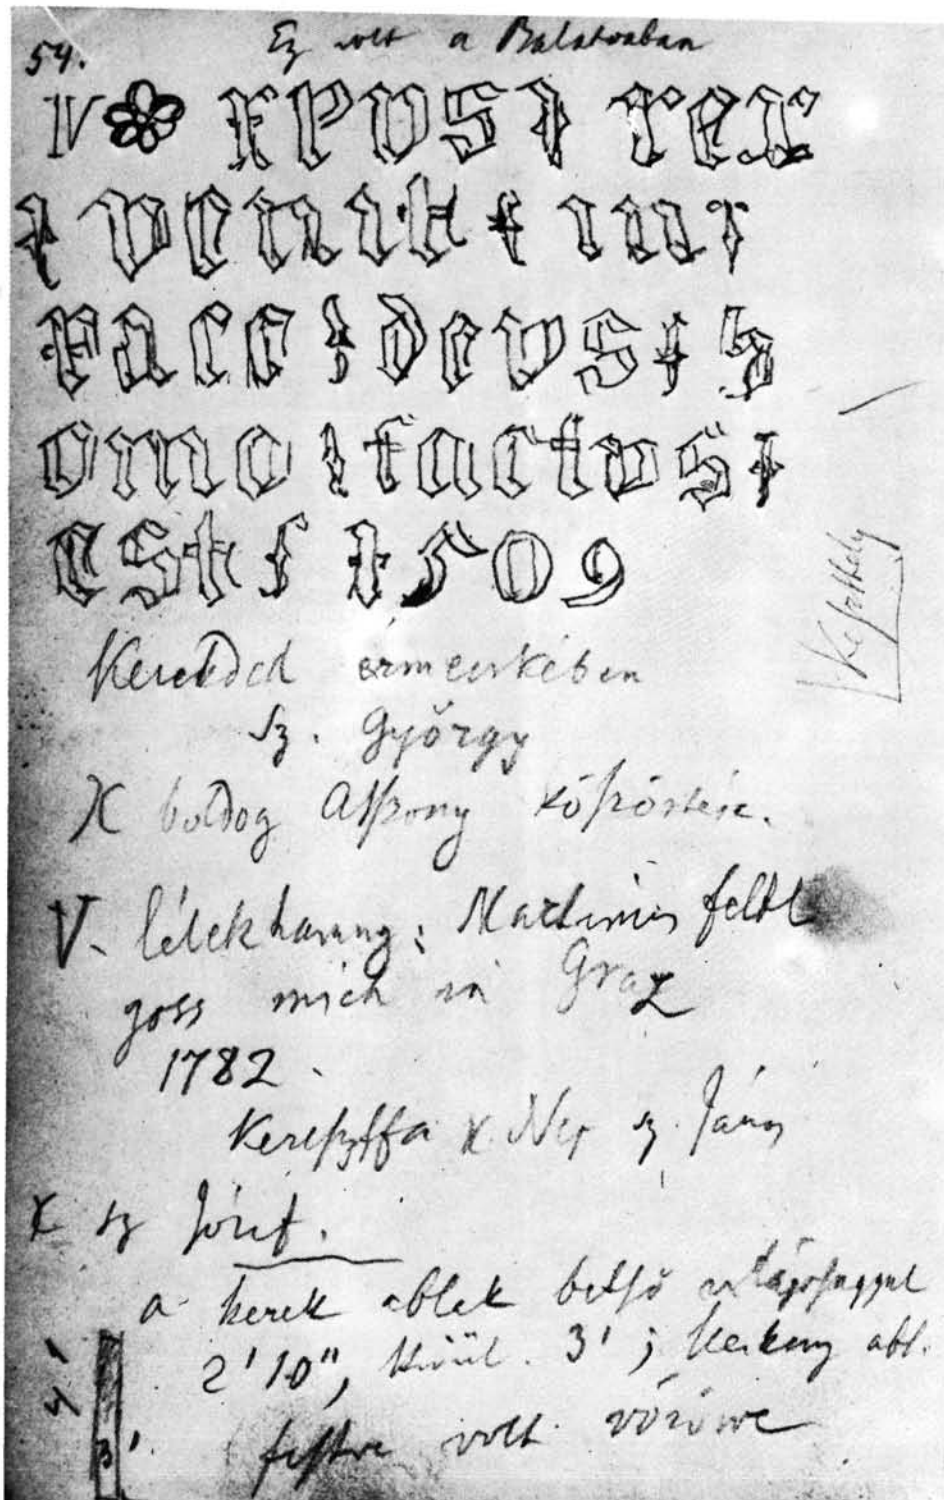 54. Ez volt a Balatonban
IV xpus rex
venit in
pace deus h
omo factus
est 1509
Kerekded érmecskében
Sz. György
X boldog Aszszony köszöntése.
V. lélekharang: Martinus feldl
goss mich in Graz
1782.
Kereszffa X. Nep sz. János
X sz Józef.
a kerek ablak belső világossággal
2'10", kivül. 3'; Keskeny abl.
4'
3'. festve volt vörösre
Keszthely